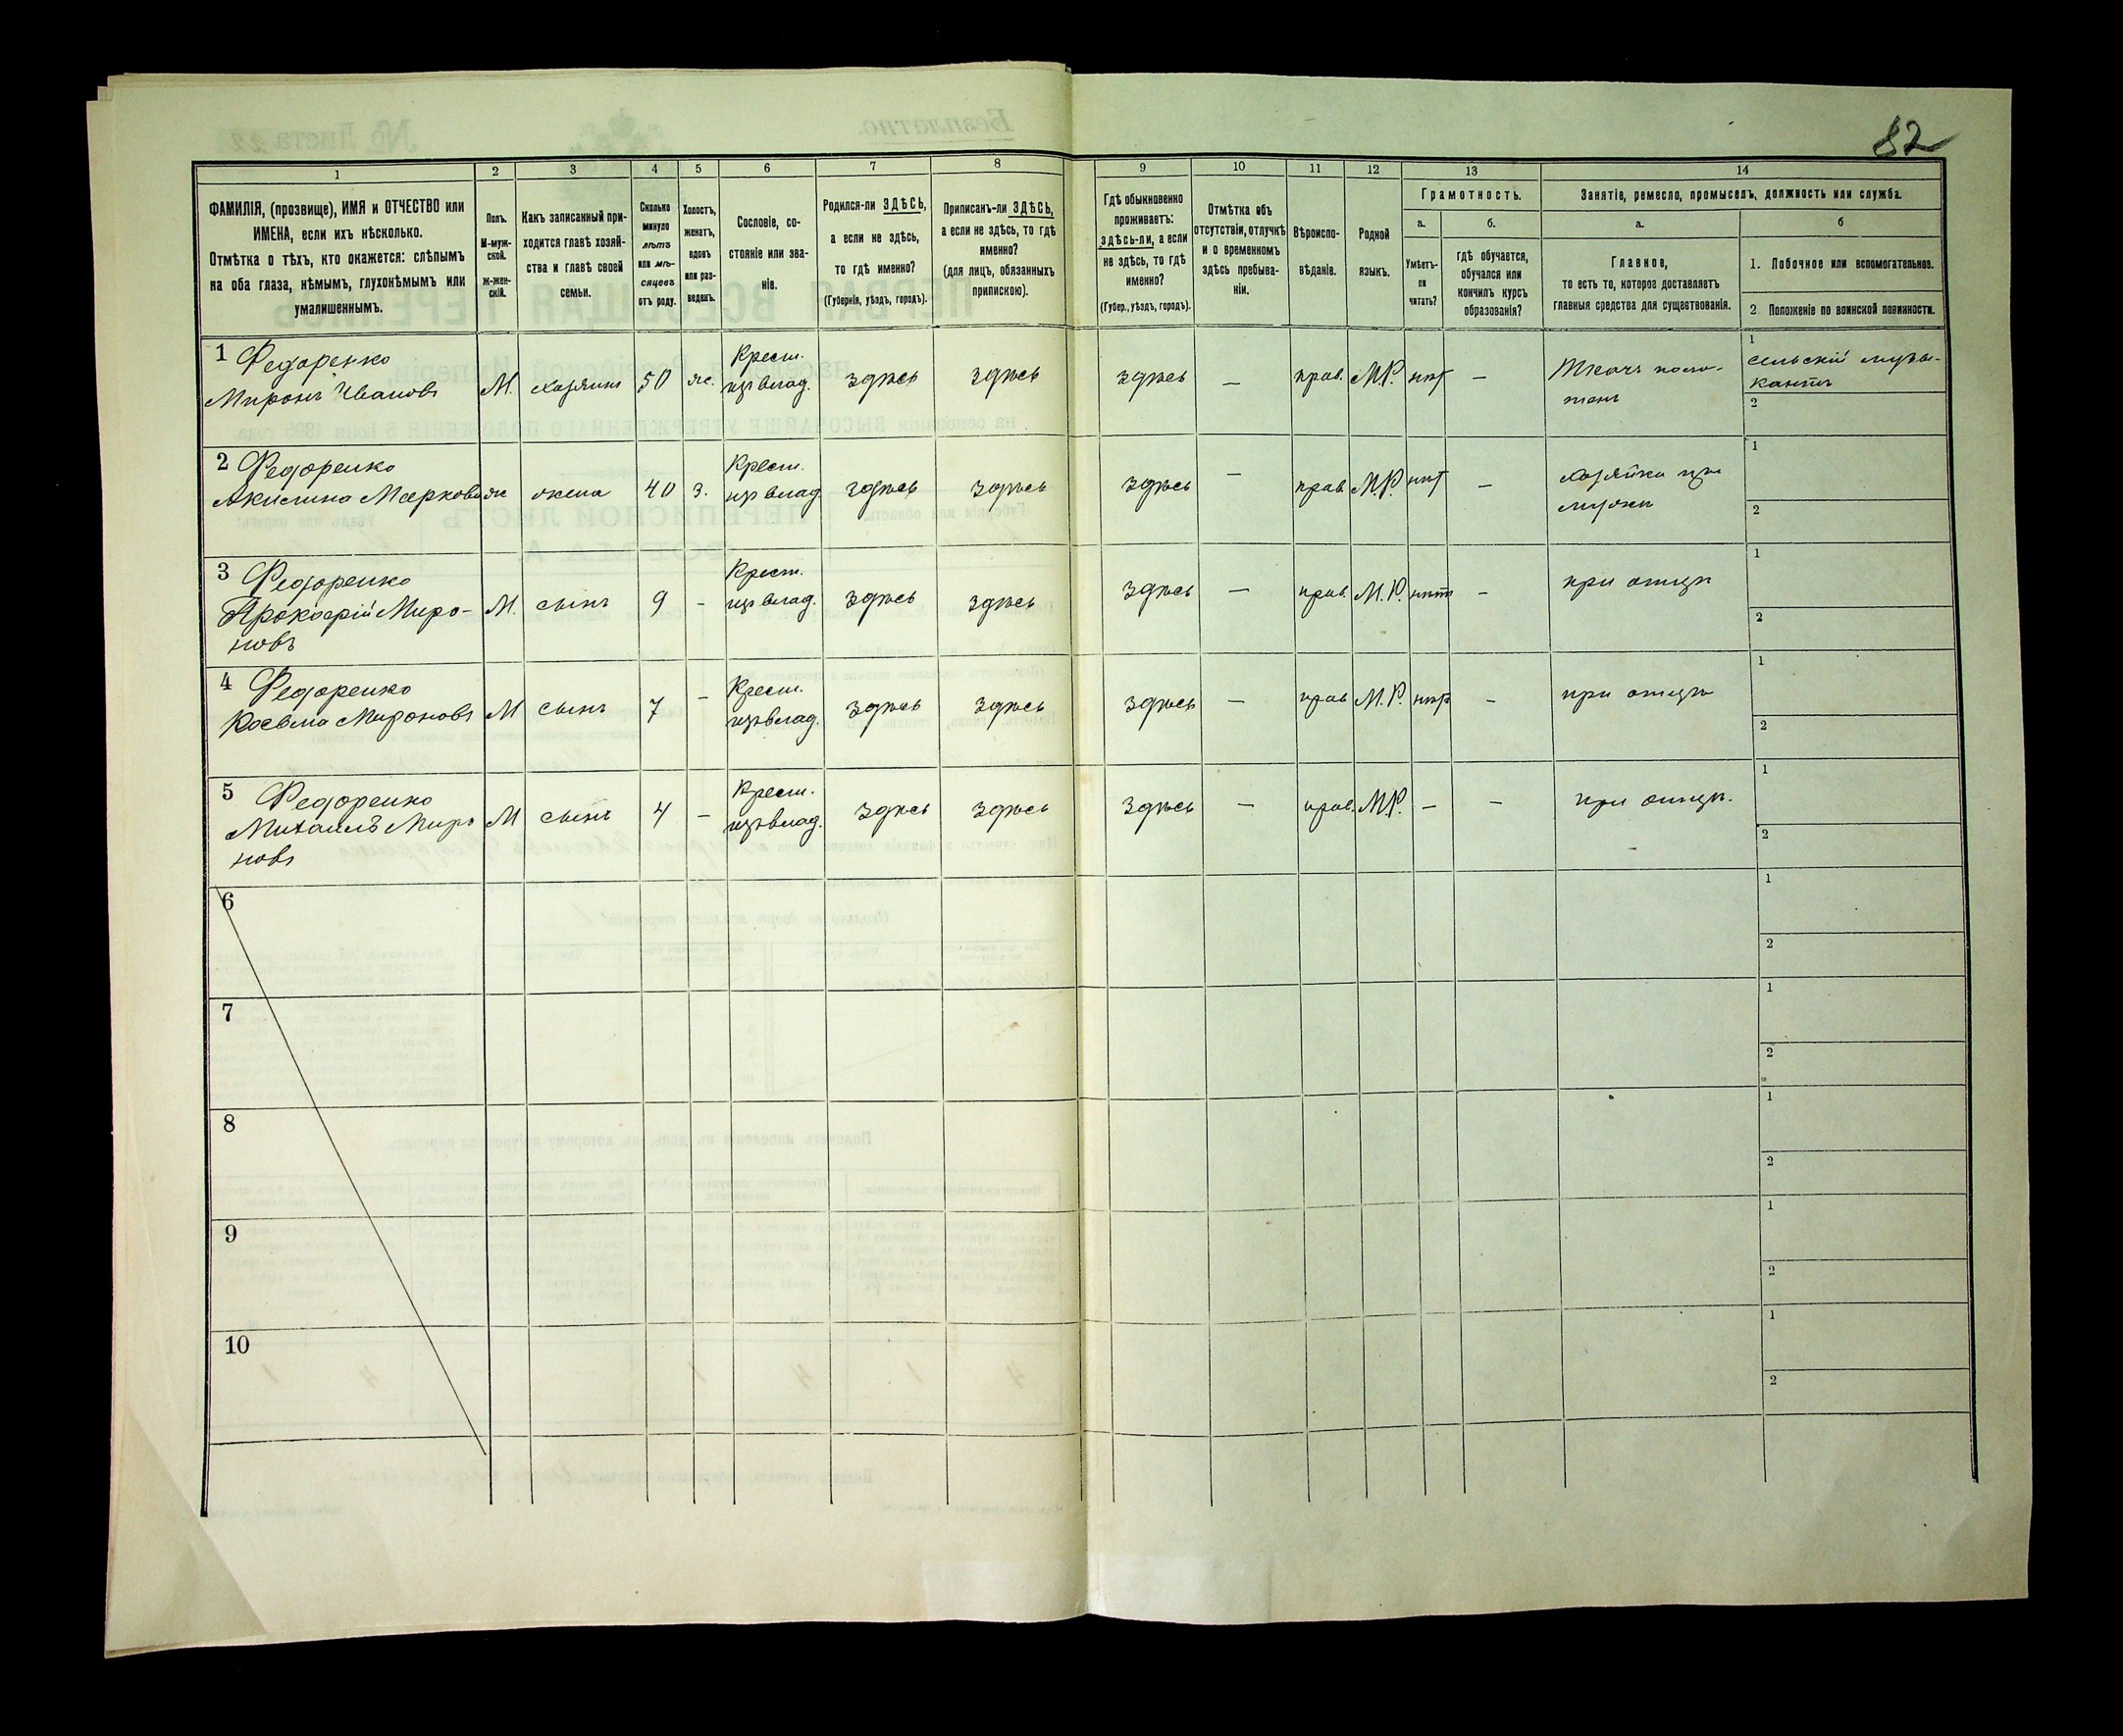 82
1 2 3 4 5 6 7 8 9 10 11 12 13 14
ФАМИЛІЯ, (прозвище), ИМЯ и ОТЧЕСТВО или
ИМЕНА, если ихъ нѣсколько.
Отмѣтка о тѣхъ, кто окажется: слѣпымъ
на оба глаза, нѣмымъ, глухонѣмымъ или
умалишеннымъ.
Полъ.
М-муж-
ской.
ж-жен-
скій.
Какъ записанный при-
ходится главѣ хозяй-
ства и главѣ своей
семьи.
Сколько
минуло
лѣтъ
или мѣ-
сяцевъ
отъ роду.
Холостъ,
женатъ,
вдовъ
или раз-
веденъ.
Сословіе, со-
стояніе или зва-
ніе.
Родился-ли ЗДѢСЬ,
а если не здѣсь,
то гдѣ именно?
(Губернія, уѣздъ, городъ).
Приписанъ-ли ЗДѢСЬ,
а если не здѣсь, то гдѣ
именно?
(для лицъ, обязанныхъ
припискою).
Гдѣ обыкновенно
проживаетъ:
здѣсь-ли, а если
не здѣсь, то гдѣ
именно?
(Губер., уѣздъ, городъ).
Отмѣтка объ
отсутствіи, отлучкѣ
и о временномъ
здѣсь пребыва-
ніи.
Вѣроиспо-
вѣданіе.
Родной
языкъ.
Грамотность.
а.
Умѣетъ-
ли
читать?
б.
гдѣ обучается,
обучался или
кончилъ курсъ
образованія?
Занятіе, ремесло, промыселъ, должность или служба.
а.
Главное,
то есть то, которое доставляетъ
главныя средства для существованія.
б
1. Побочное или вспомогательное.
2. Положеніе по воинской повинности.
1 Федоренко
Миронъ Ивановъ
М. хозяинъ 50 ж. Крест.
изъ влад. здѣсь здѣсь здѣсь — прав. М.Р. нѣт —
Ткачъ поло-
тенъ
1
сельскій музы-
кантъ
2
2 Федоренко
Акилина Маркова
ж жена 40 з. Крест.
изъ влад. здѣсь здѣсь здѣсь — прав. М.Р. нѣт —
хозяйка при
мужѣ
1
2
3 Федоренко
Прокофій Миро-
новъ
М. сынъ 9 - Крест.
изъ влад. здѣсь здѣсь здѣсь — прав. М.Р. нѣт —
при отцѣ
1
2
4 Федоренко
Косьма Мироновъ
М сынъ 7 - Крест.
изъ влад. здѣсь здѣсь здѣсь — прав М.Р. нѣт —
при отцѣ
1
2
5 Федоренко
Михаилъ Миро
новъ
М сынъ 4 - Крест.
изъ влад. здѣсь здѣсь здѣсь — прав. М.Р. — —
при отцѣ.
1
2
6
1
2
7
1
2
8
1
2
9
1
2
10
1
2